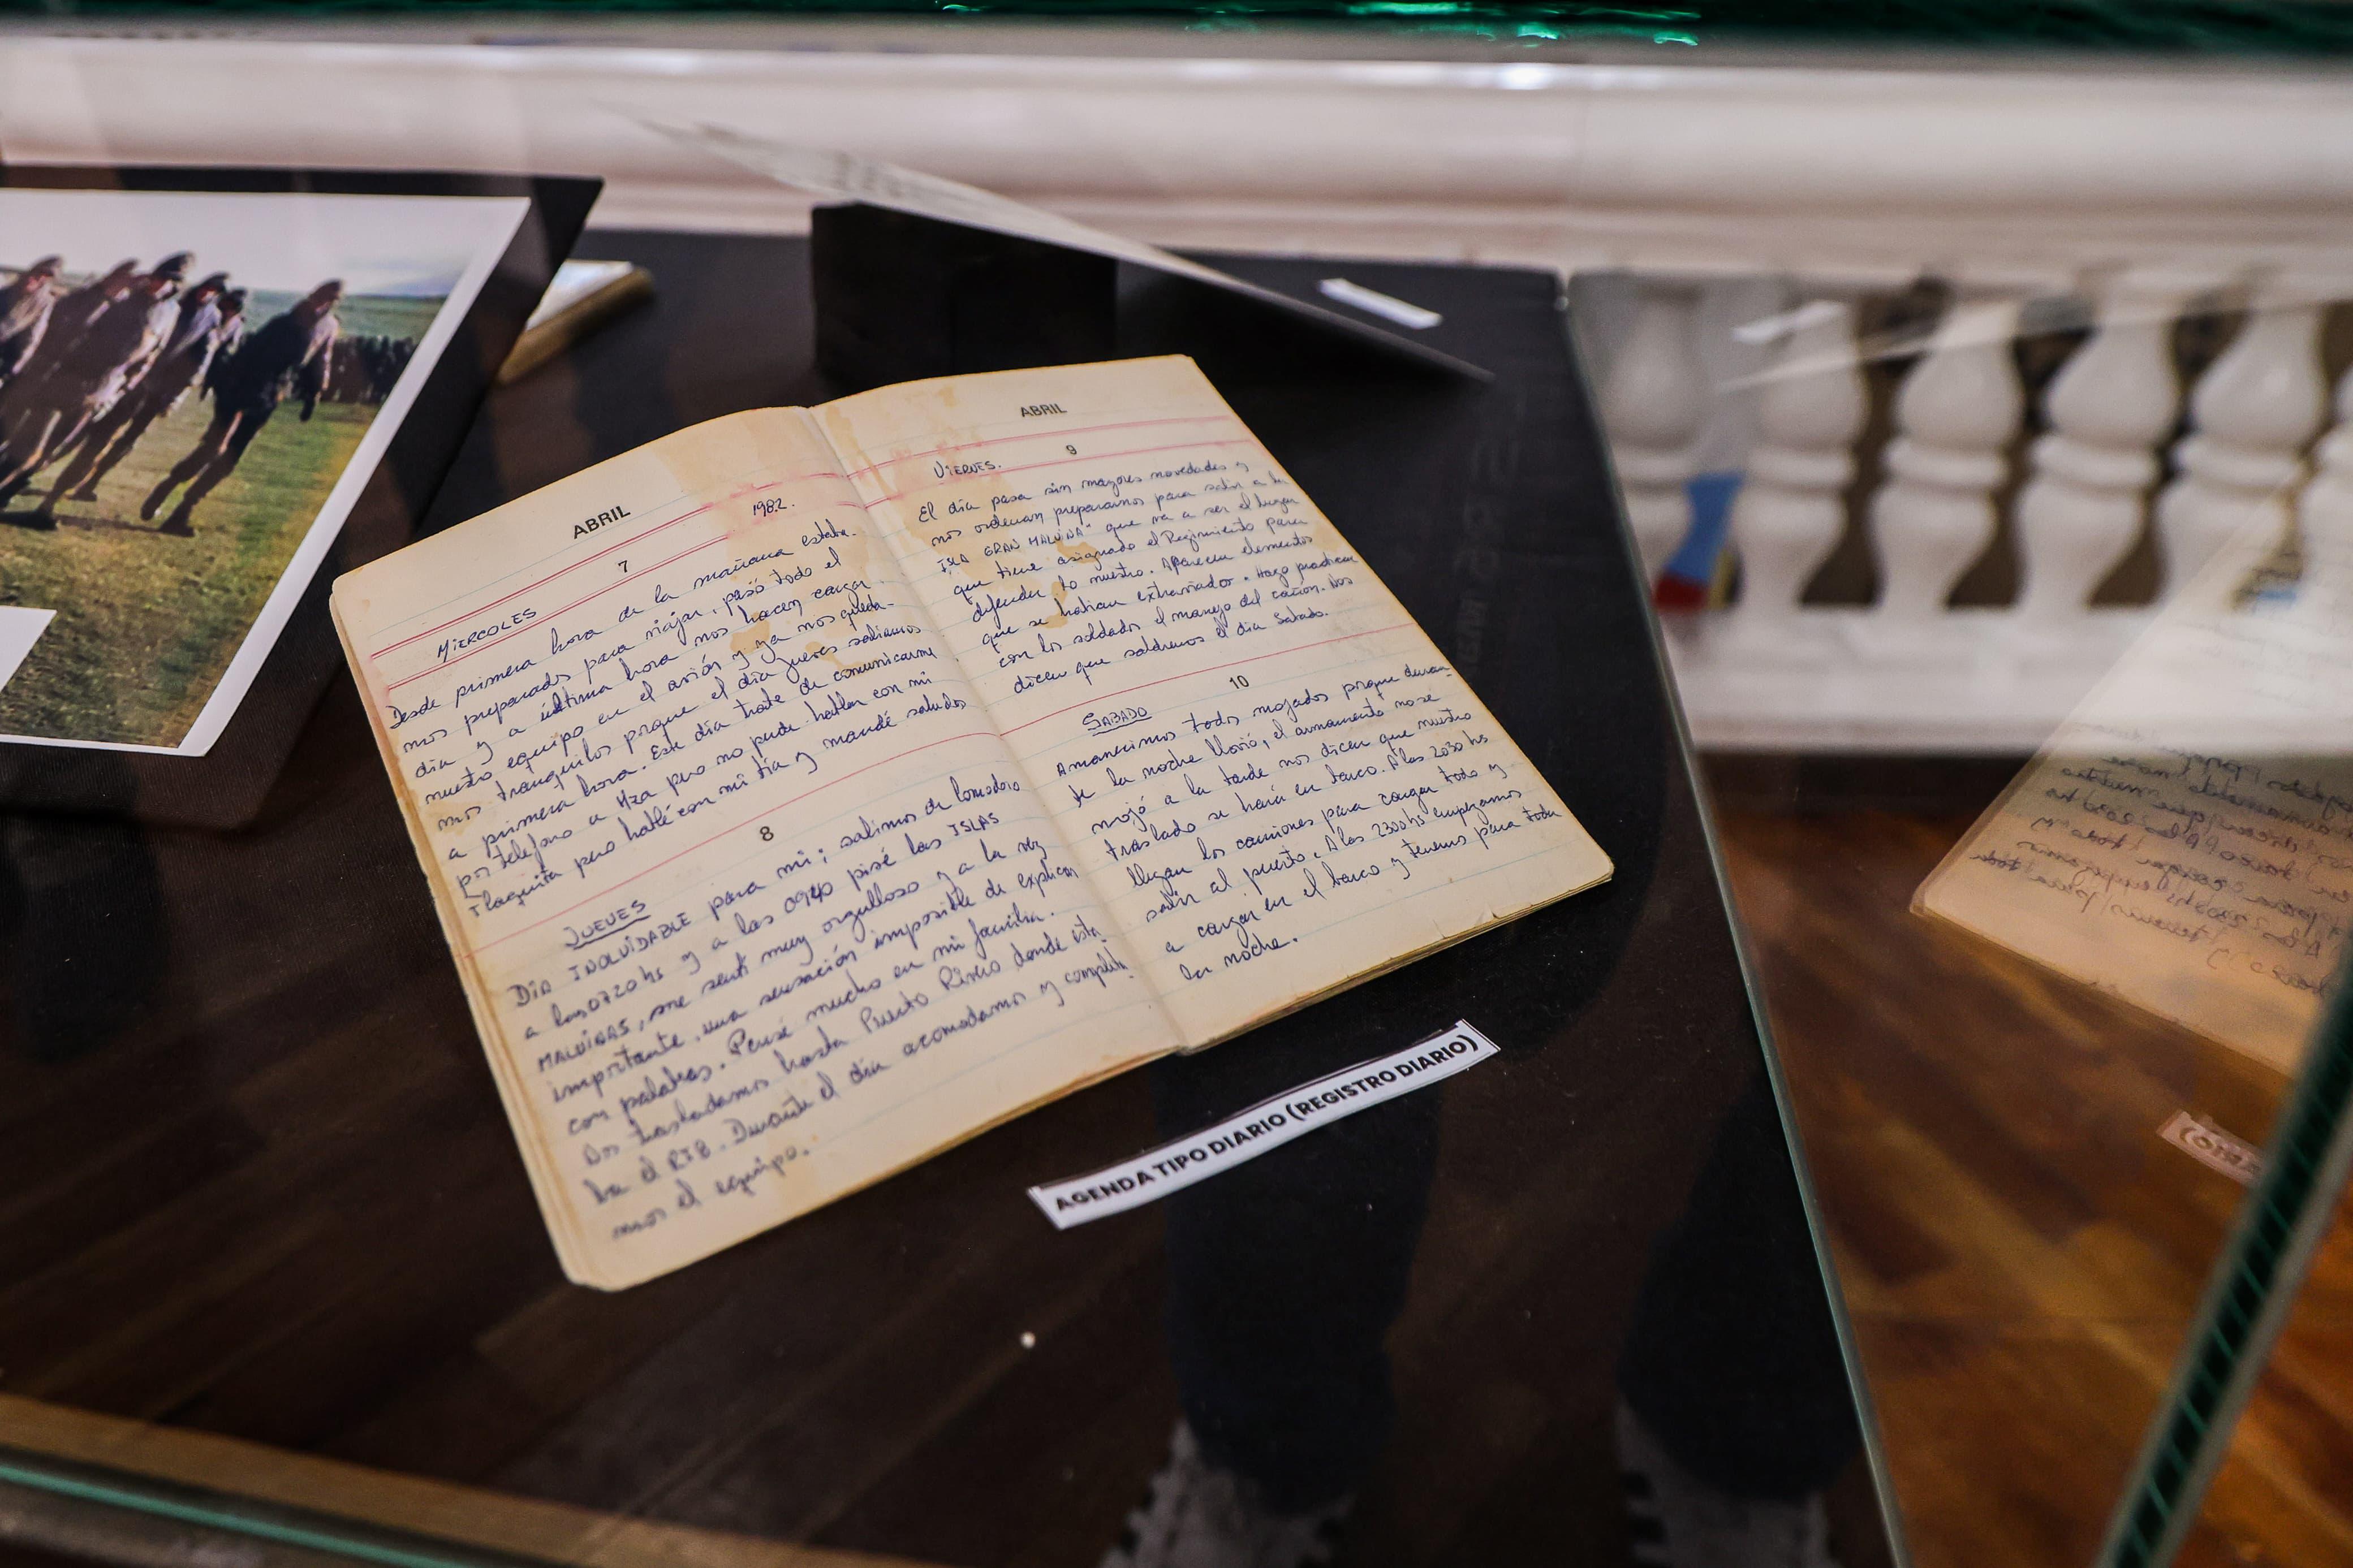 ABRIL
7
1982.
MIERCOLES
Desde primera hora de la mañana estaba-
mos preparados para viajar, pasó todo el
día y a última hora nos hacen cargar
nuestro equipo en el avión y ya nos queda-
mos tranquilos porque el día jueves saliamos
a primera hora. Este día traté de comunicarme
por telefono a Mza pero no pude hablar con mi
flaquita pero hablé con mi tía y mandé saludos
8
JUEVES
DIA INOLVIDABLE para mi; salimos de Comodoro
a las 0720 hs y a las 0940 pisé las ISLAS
MALVINAS, me sentí muy orgulloso y a la vez
importante, una sensación imposible de explicar
con palabras. Pensé mucho en mi familia.
Nos trasladamos hasta Puerto Rivero donde esta-
ba el RI8. Durante el día acomodamos y completa-
mos el equipo.
ABRIL
9
VIERNES.
El día pasa sin mayores novedades y
nos ordenan prepararnos para salir a la
ISLA GRAN MALVINA" que va a ser el lugar
que tiene asignado el Regimiento para
defender lo nuestro. Aparecen elementos
que se habian extraviados. Hago practicar
con los soldados el manejo del cañon. Nos
dicen que saldremos el dia Sabado.
10
SABADO
Amanecimos todos mojados porque duran-
te la noche llovió, el armamento no se
mojó a la tarde nos dicen que nuestro
traslado se hará en barco. A las 2030 hs
llegan los camiones para cargar todo y
salir al puerto. A las 2300 hs empezamos
a cargar en el barco y tenemos para toda
la noche.
AGENDA TIPO DIARIO (REGISTRO DIARIO)